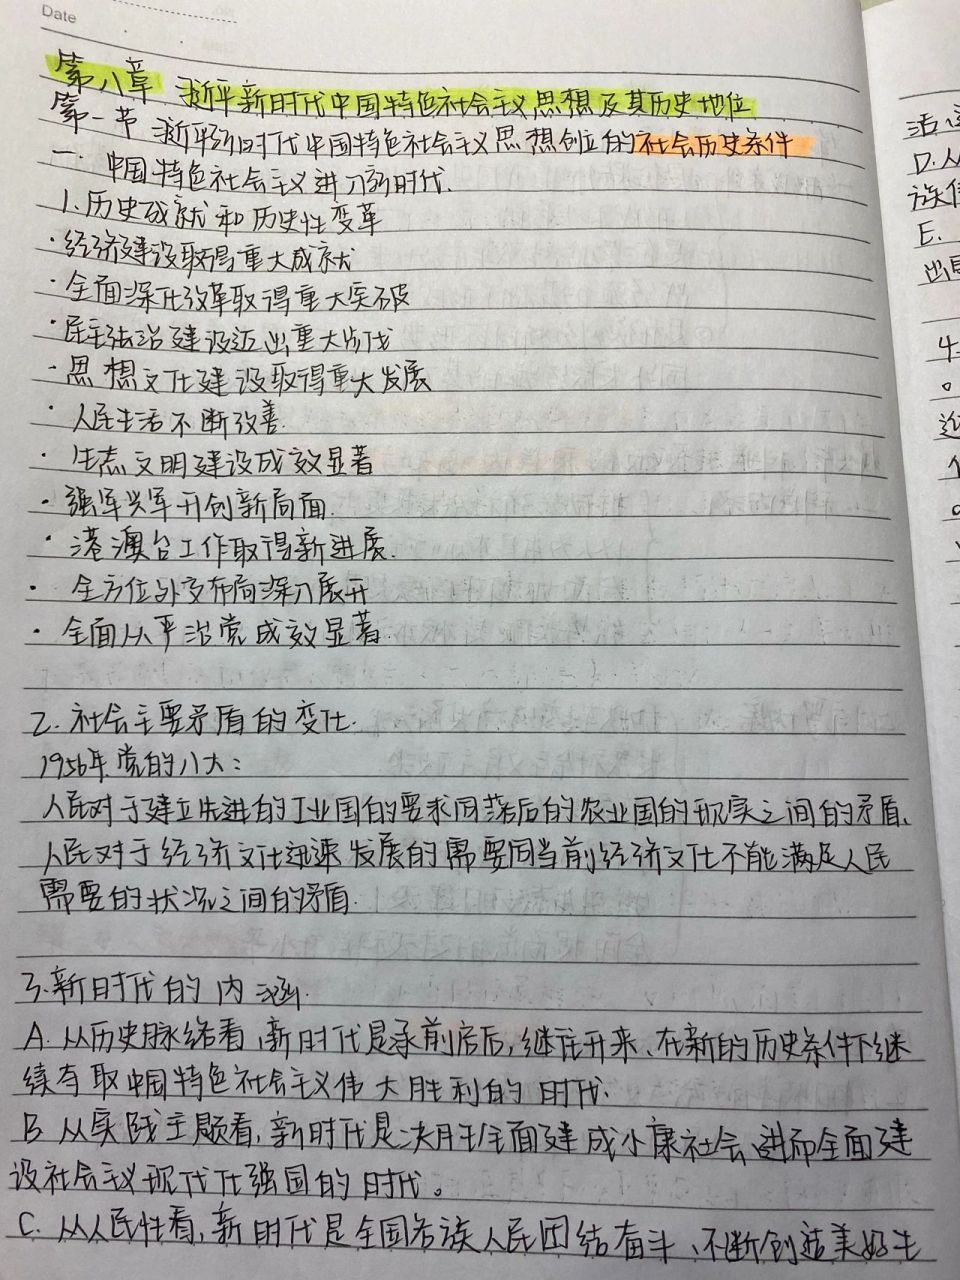 Date
第八章 习近平新时代中国特色社会主义思想及其历史地位
第一节 习近平新时代中国特色社会主义思想创立的社会历史条件
一. 中国特色社会主义进入新时代.
1.历史成就和历史性变革
·经济建设取得重大成就
·全面深化改革取得重大突破
·民主法治建设迈出重大步伐
·思想文化建设取得重大发展
·人民生活不断改善.
·生态文明建设成效显著
·强军兴军开创新局面.
·港澳台工作取得新进展.
·全方位外交布局深入展开
·全面从严治党成效显著.
2.社会主要矛盾的变化.
1956年党的八大:
人民对于建立先进的工业国的要求同落后的农业国的现实之间的矛盾.
人民对于经济文化迅速发展的需要同当前经济文化不能满足人民
需要的状况之间的矛盾.
3.新时代的内涵.
A.从历史脉络看,新时代是承前启后,继往开来、在新的历史条件下继
续夺取中国特色社会主义伟大胜利的时代.
B 从实践主题看,新时代是决胜全面建成小康社会、进而全面建
设社会主义现代化强国的时代。
C.从人民性看,新时代是全国各族人民团结奋斗、不断创造美好生
活
D.从
族
E.
出